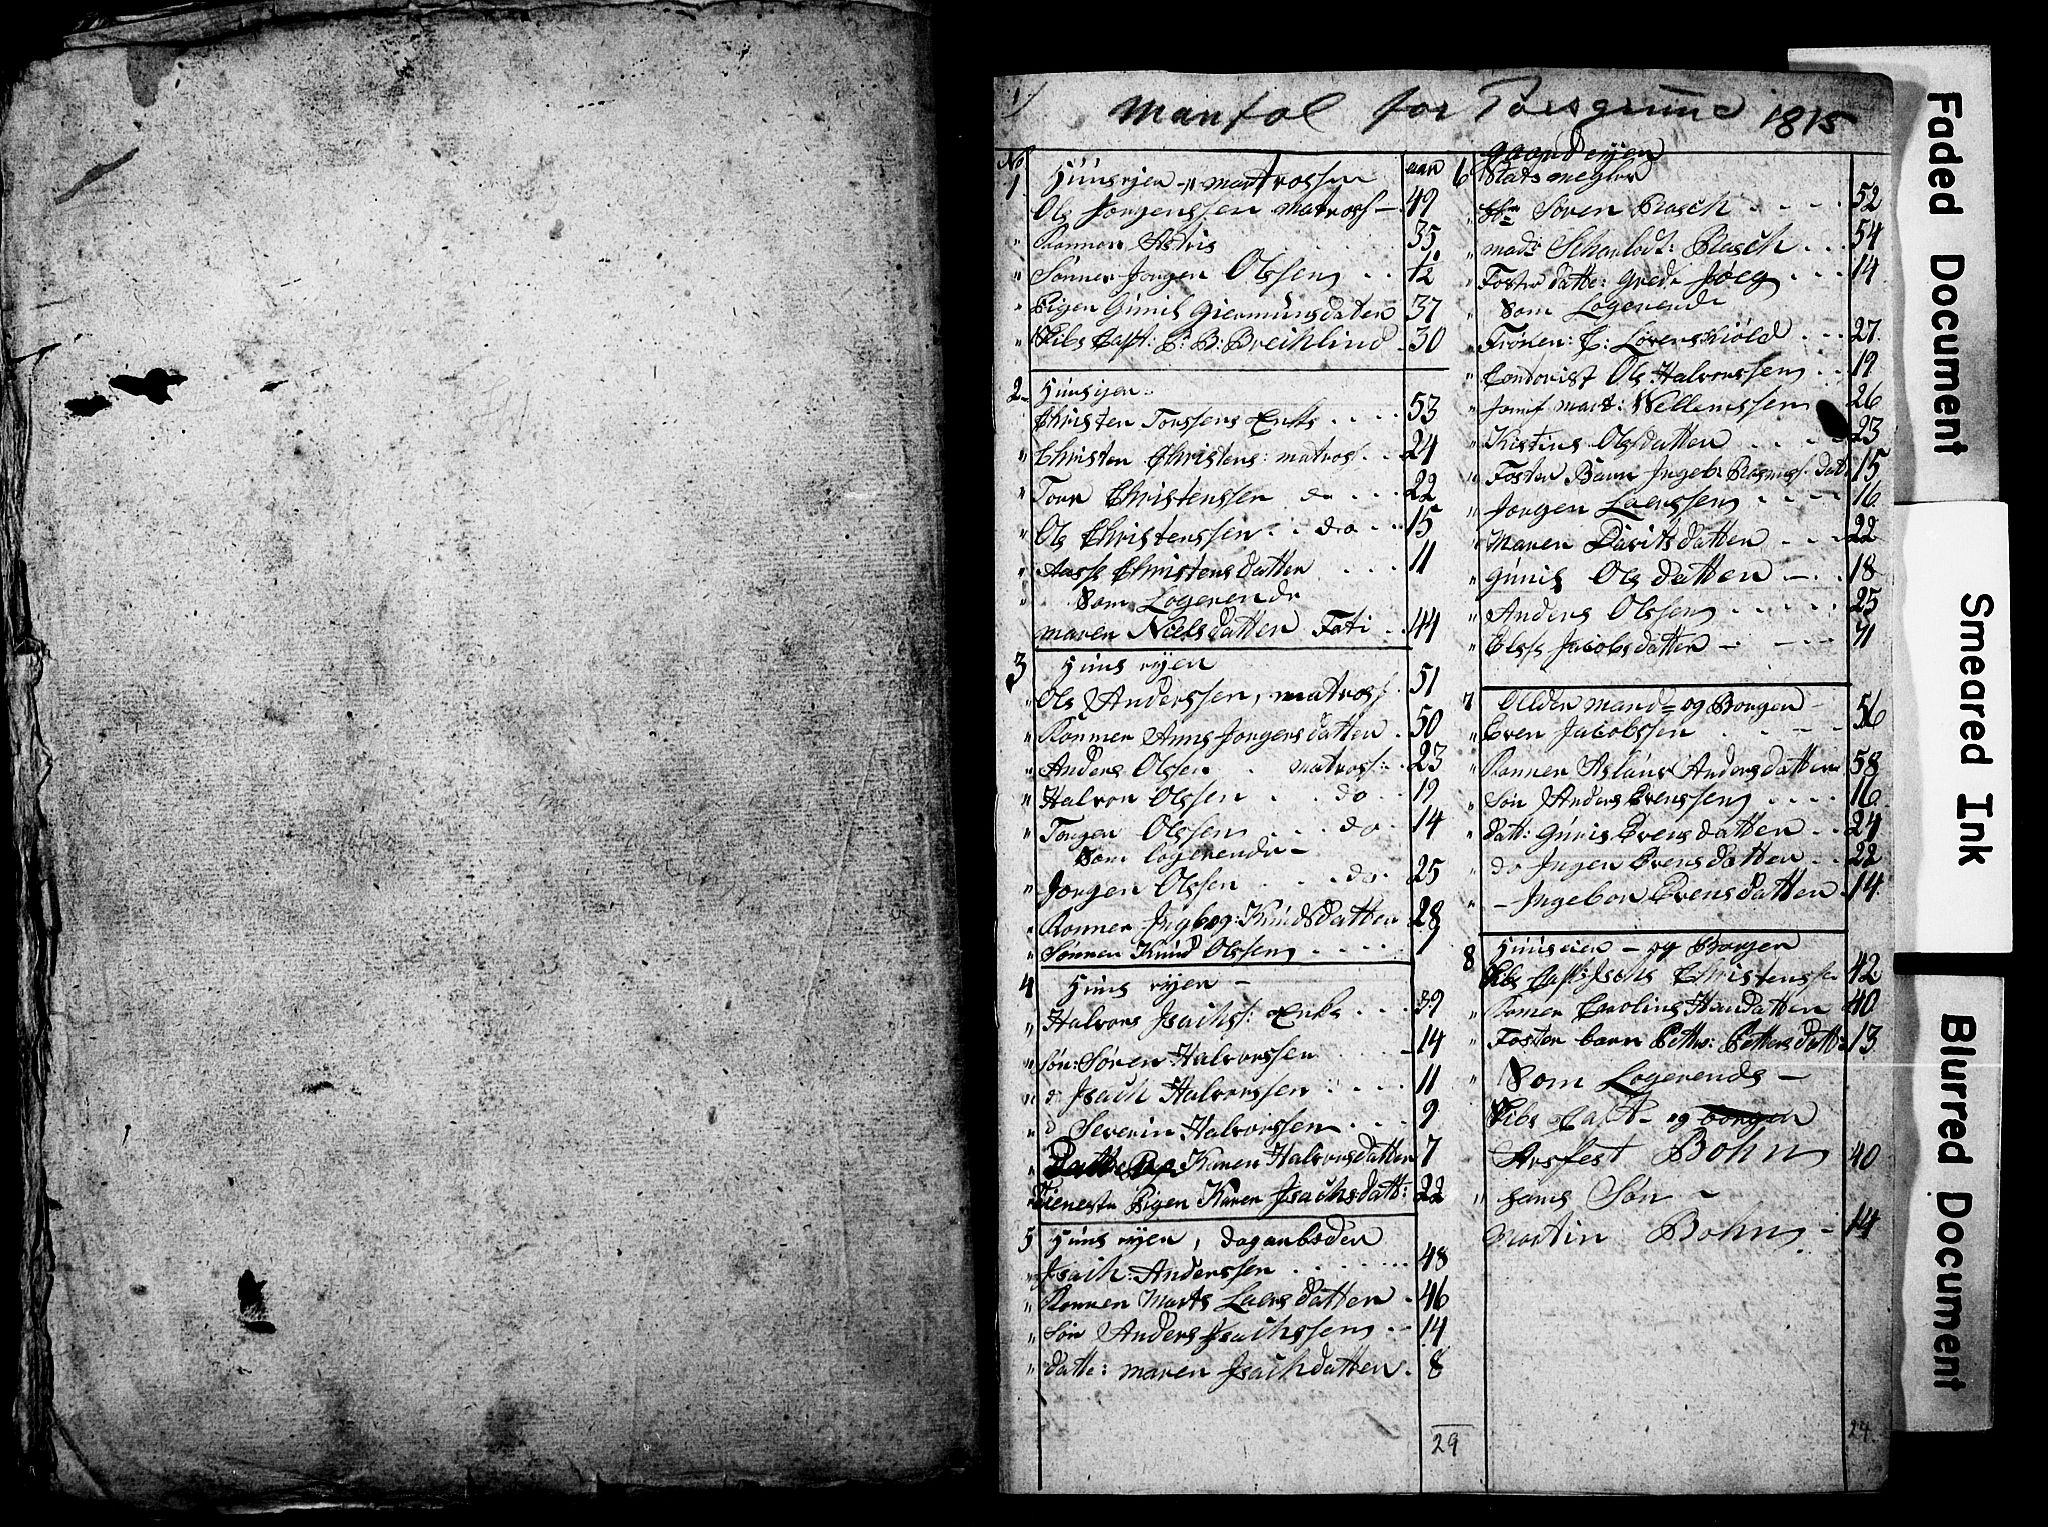 1/
Mantal for Porsgrund 1815
No
aar
1. Huusejer - matrossen
Ole Jørgenssen matross - 49
" Konnen Astris 35
" Sønner Jørgen Olssen . . 1/2
" Pigen Gunil Giermunsdatter 37
" Skibs Capt: C: B: Breihlind . 30
2 Huusejer
Christen Torssens Enke . . . . 53
" Christen Christens: matros . . 24
" Torr Christenssen do . . . 22
" Ole Christenssen . . do . . . 15
" Aasse Christensdatter . . . . 11
" Som Logerende
maren Nielsdatter Fati . . 44
3 Huus ejer
" Ole Anderssen, matross . 51
" Konner Anne Jørgensdatter . 50
" Anders Olssen . matross: . 23
" Halvor Olssen . . do . 19
" Torgen Olssen . . . do . 14
Som logerende -
" Jørgen Olssen . . . do . 25
" Konner Ingbog: Knudsdatter 28
" Sønnen Knud Olssen . . . . . 1
4 Huus ejer -
" Halvors Isachs: Enke . . . 39
" søn: Søren Halvorssen . . . . 14
" do Isach Halvorssen . . . . 11
" do Severin Halvorssen . . . 9
" Karen Halvorsdatter 7
" Tieneste Pigen Karen Isachsdatt: 22
5 Huus ejer, dagarbeder
" Isach: Anderssen . . . . . . . 48
" Konnen Marte Laersdatter . 46
" Søn Anders Isachssen . . 14
" datte: maren Isachdatter . 8
29
6 gaardejer
Statsmegler
" Hr Søren Basch . . . . 52
" mad: Scharlodt: Basch . . . 54
" Foster datte: Grede Joeg . . . . 14
" Som Logerende
" Frøken: C: Løvenskiold . . . 27
" Condorist Ole Halvorssen . . 19
" Jomf mart: Wellemssen 26
" Kistine Olsdatter . . . . 23
" Foster Barn Ingeb: Rasmus: dat: 15
" Jørgen Laerssen . . . . 16
" Maren Davitsdatter - . . 22
" Gunil Olsdatter - . . 18
" Anders Olssen . . . . . 25
" Elsse Jacobsdatter - . - . - . 71
7 Olldermand - og Borger -
" Even Jacobssen . . . - - 56
" Konnen Aslaug Andersdatter 58
" Søn Anders Evenssen . . . . 16
" datt: Guris Evensdatter . . 24
" do Ingen Evensdatter . . 22
" - Ingebor Evensdatter . 14
8 Huuseier - og Borger
Skibs Capt: Isach Christenssen 42
" Konnen Caroline Hansdatter 40
" Foster barn Pettr: Pettersdatt: 13
" Som Logerende -
Skibs Capt - og borger
Arsfest Bohn 40
" hans Søn -
Martin Bohn . - 14
24
Faded Document
Smeared Ink
Blurred Document